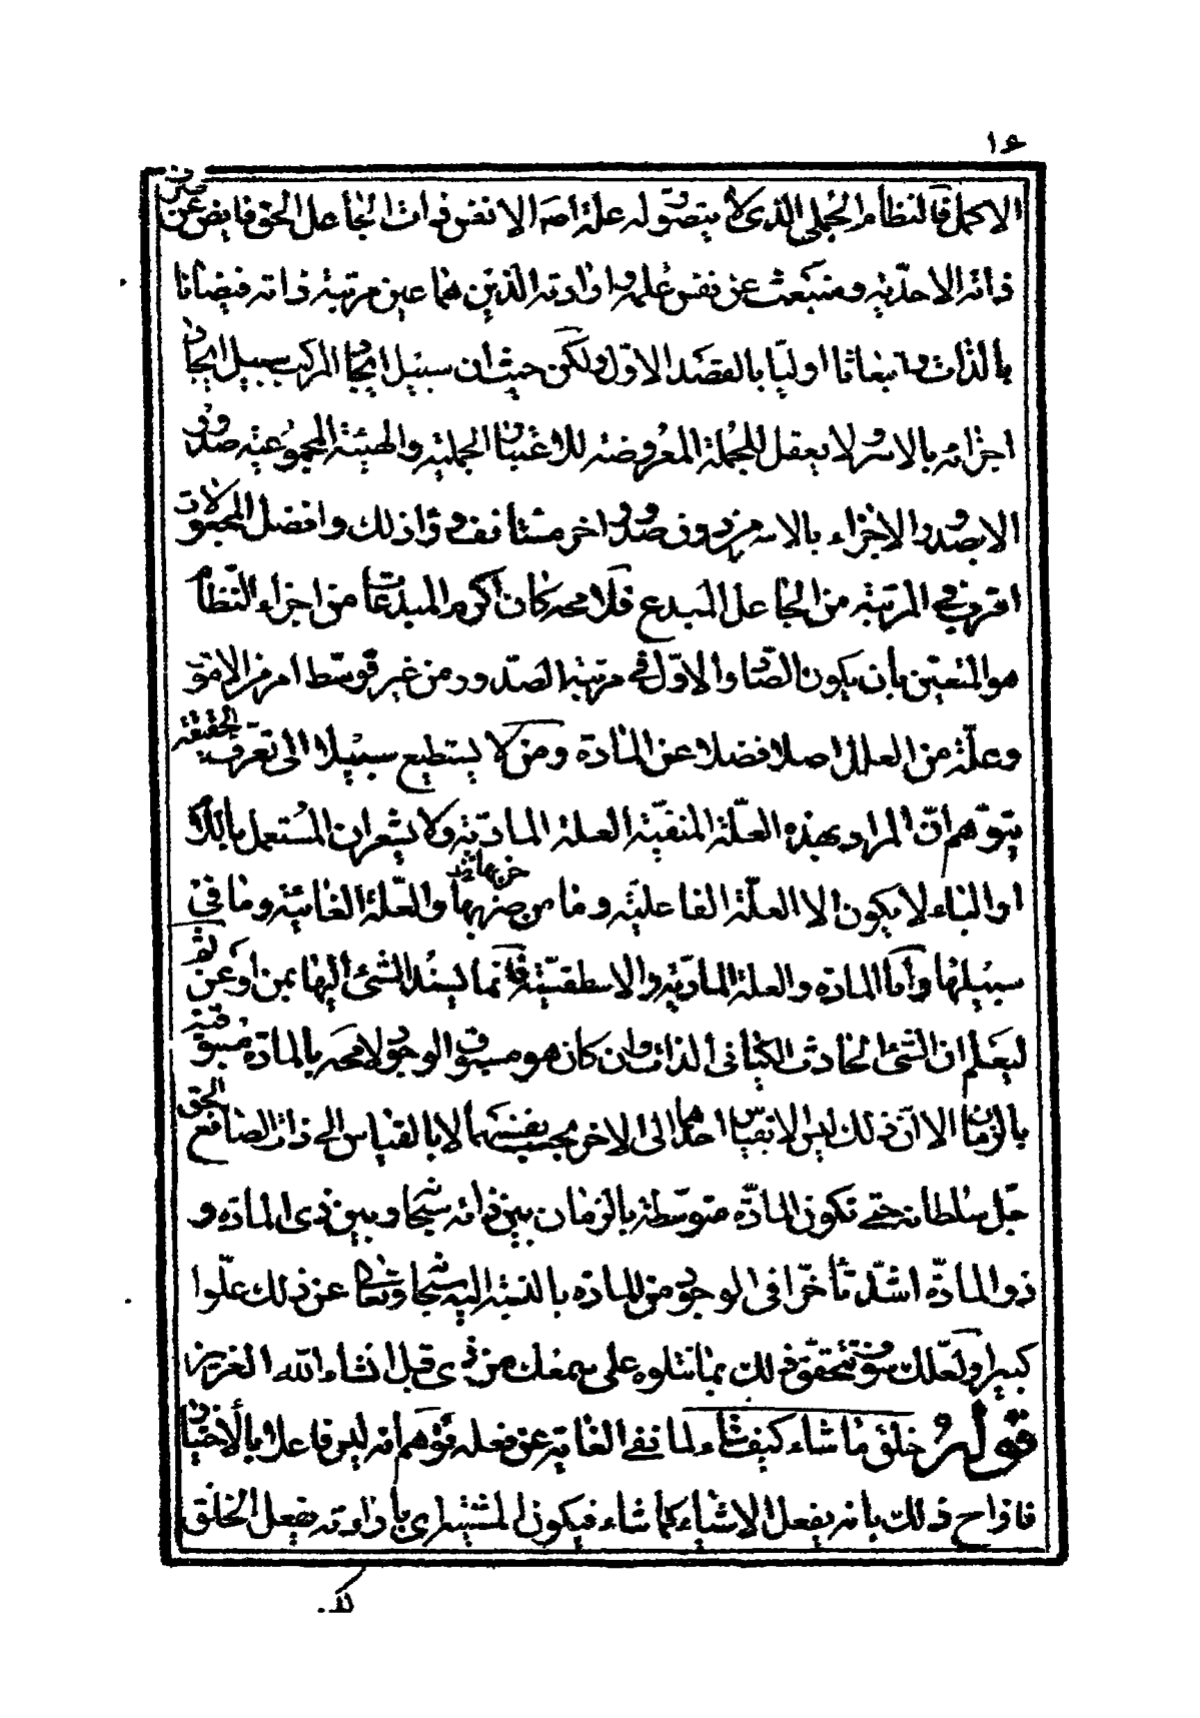 ١٤
الاكمل فالنظام الجملى الذى لا يتصور له علة تامة الا نفس ذات الجاعل الحق فايض عن عين
ذاته الاحدية ومنبعث عن نفس علمه وارادته الذين هما عين مرتبة ذاته فيضانا
بالذات وانبعاثا اوليا بالقصد الاول ولكن حيث ان سبيل ايجاد المركب سبيل ايجاد
اجزائه بالاسر لا يعقل للجملة المعروضة للاعتبار الجملية والهيئة المجموعية صدور
الا بصدور الاجزاء بالاسر من دون صدور اخر مستانف واذ ذلك وافضل المجعولات
اقرب فى المرتبة من الجاعل المبدع فلا محه كان اكرم المبدعات من اجزاء النظام
هو المتعين بان يكون الصادر الاول فى مرتبة الصدور من غير توسط امر من الامور
وعلة من العلل اصلا فضلا عن المادة ومن لا يستطيع سبيلا الى تعرف الحقيقة
يتوهم ان المراد بهذه العلة المنفية العلة المادية ولا يشعر ان المستعمل باللام
او الباء لا يكون الا العلة الفاعلية وما من حزبها والعلة الغائية وما فى
سبيلها واما المادة والعلة المادية والاسطقسية فانما يسند الشئ اليها بمن او عن ثم
ليعلم ان الشئ الحادث الكيانى الذات وان كان هو مسبوق الوجود لا محه بالمادة مسبوقية
بالزمان الا ان ذلك ليس الا بقياس احدهما الى الاخر بحسب نفسهما لا بالقياس الى ذات الصانع الحق
جل سلطانه حتى تكون المادة متوسطة بالزمان بين ذاته سبحانه وبين ذى المادة و
ذو المادة اشد تأخرا فى الوجود من المادة بالنسبة اليه سبحانه وتعالى عن ذلك علوا
كبيرا ولعلك سوف تتحقق ذلك بما نتلوه على سمعك من ذى قبل انشاء الله العزيز
قوله خلق ما شاء كيف شاء لما نفى الغاية عن فعله توهم انه ليس فاعلا بالاختيار
فازاح ذلك بانه يفعل الاشياء كما شاء فيكون المشية اى بارادته يفعل الخلق